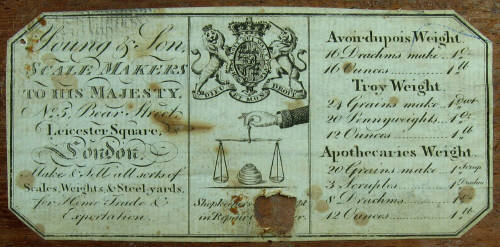 Young & Son,
SCALE MAKERS
TO HIS MAJESTY.
No. 5, Bear Street
Leicester Square,
London.
Make & Sell all sorts of
Scales, Weights, & Steel-yards,
for Home Trade &
Exportation.
DIEU ET MON DROIT
in Repair
Avoirdupois Weight
16 Drachms make 1 oz
16 Ounces 1 lb
Troy Weight.
24 Grains make 1 Dwt
20 Pennyweights 1 Oz
12 Ounces 1 lb
Apothecaries Weight
20 Grains make 1 Scrup
3 Scruples 1 Drachm
8 Drachms
12 Ounces 1 lb